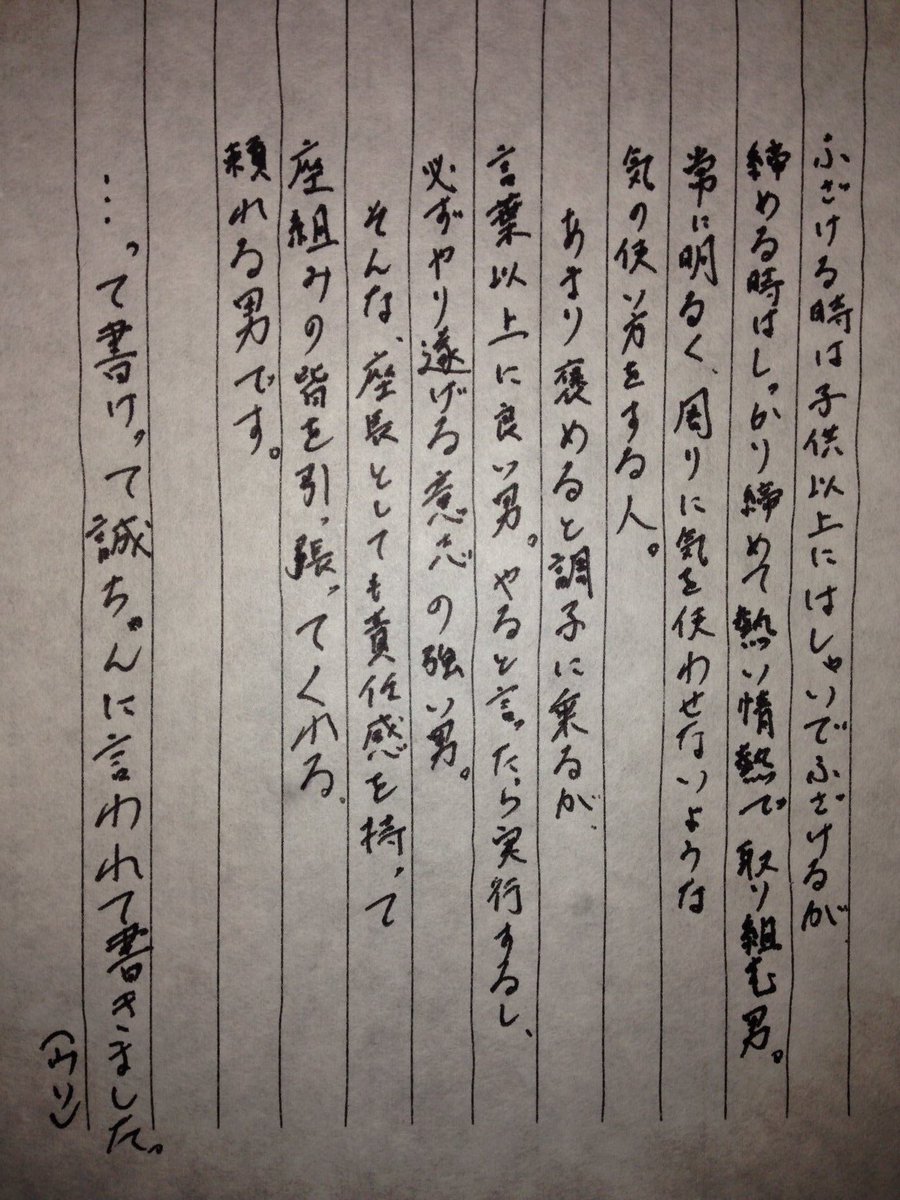 ふざける時は子供以上にはしゃいでふざけるが、
締める時はしっかり締めて熱い情熱で取り組む男。
常に明るく、周りに気を使わせないような
気の使い方をする人。
あまり褒めると調子に乗るが、
言葉以上に良い男。やると言ったら実行するし、
必ずやり遂げる意志の強い男。
そんな、座長としても責任感を持って
座組みの皆を引っ張ってくれる、
頼れる男です。
…って書けって誠ちゃんに言われて書きました。
(ウソ)